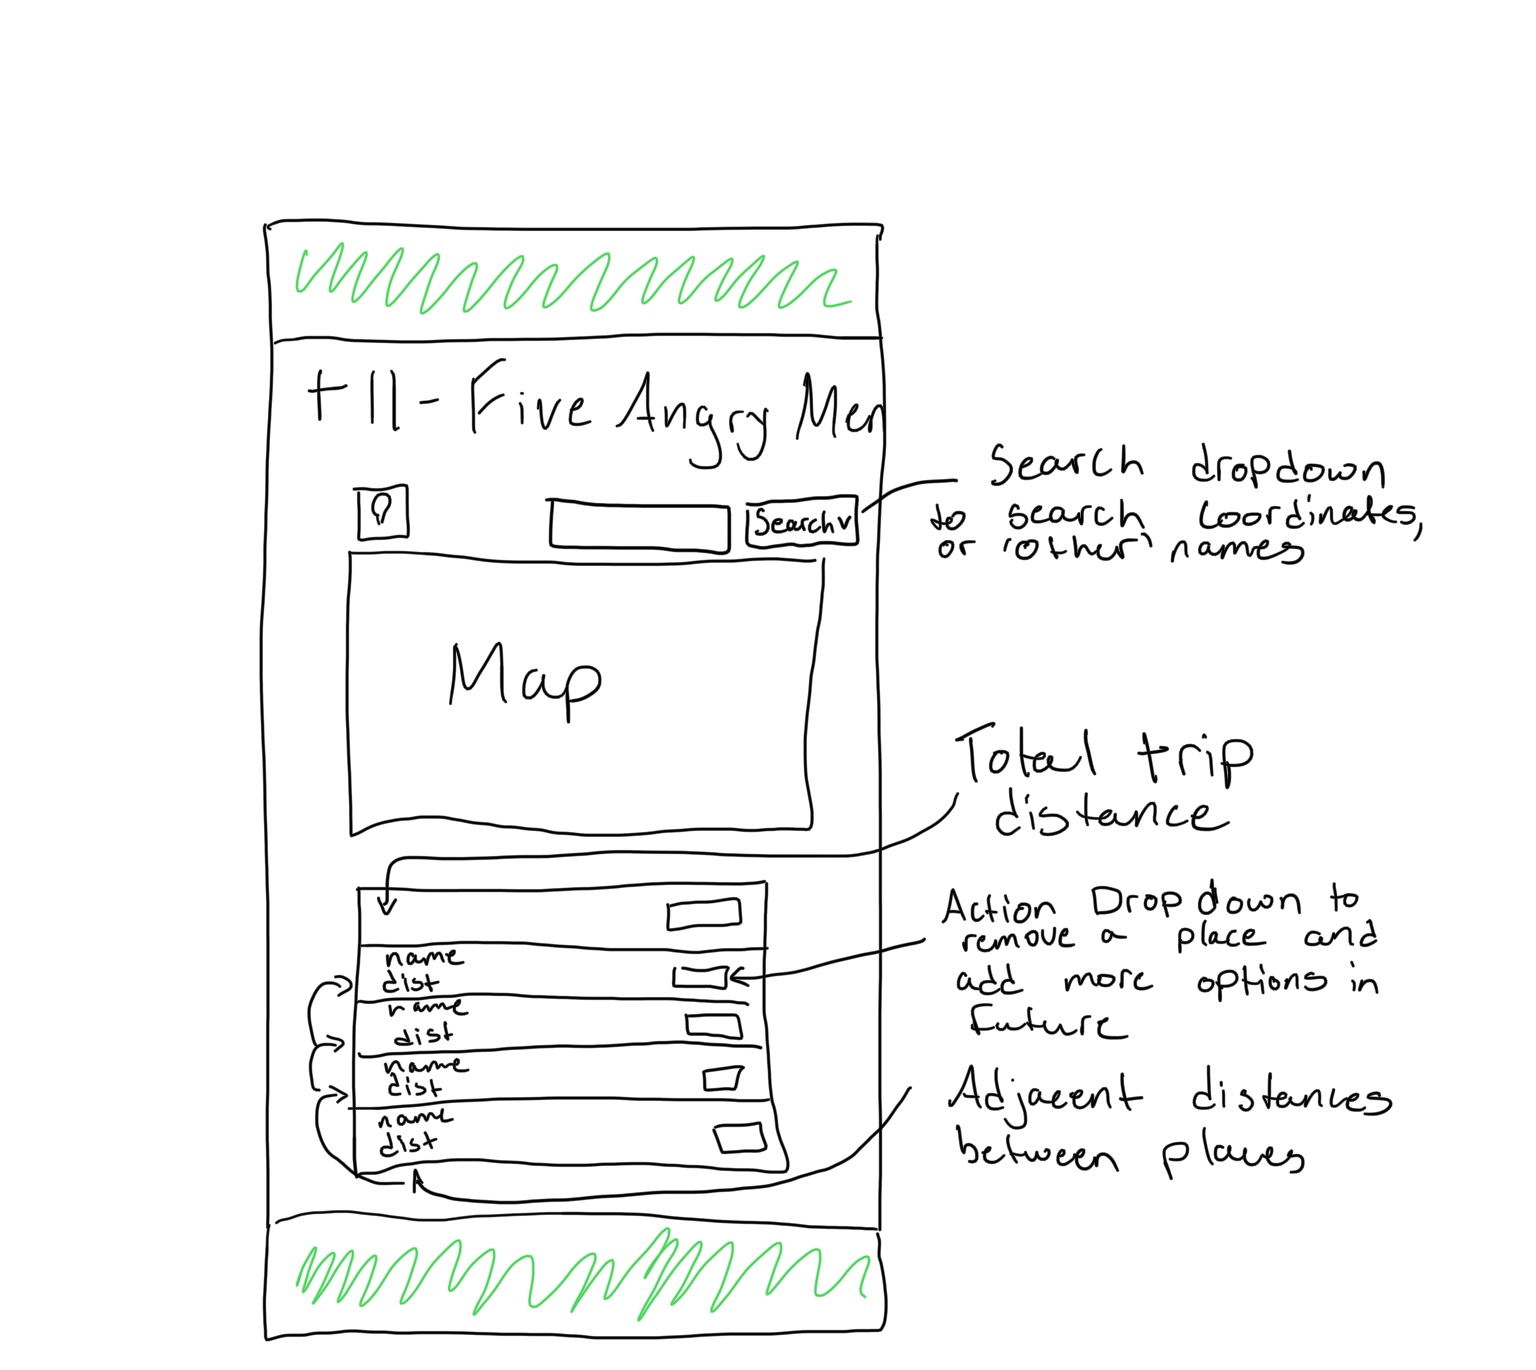 t11 - Five Angry Men
Search v
Search dropdown
to search coordinates,
or 'other' names
Map
Total trip
distance
name
dist
name
dist
name
dist
name
dist
Action Dropdown to
remove a place and
add more options in
future
Adjacent distances
between places